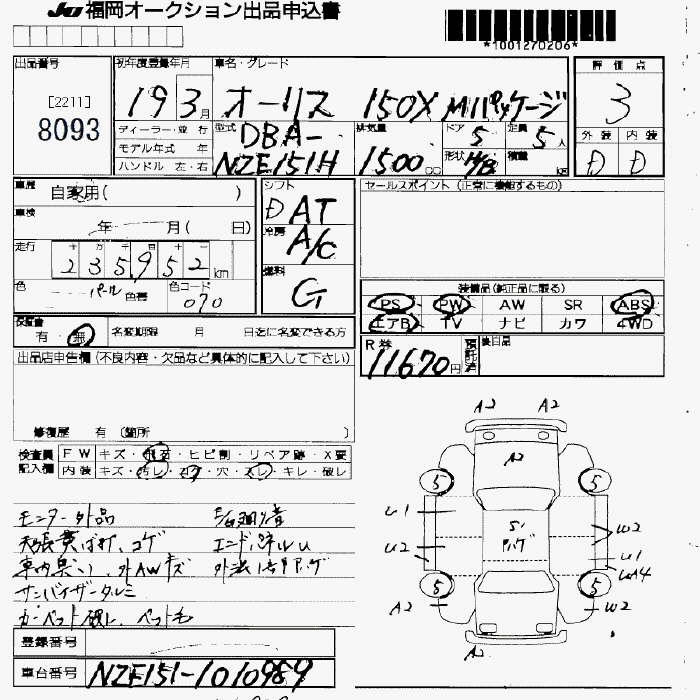 JU 福岡オークション出品申込書
*1001270206*
出品番号 [2211] 8093
初年度登録年月 19 3月
車名・グレード オーリス 150X Mパッケージ
評価点 3
外装 D 内装 D
ディーラー・並行
モデル年式 年
ハンドル 左・右
型式 DBA-NZE151H
排気量 1500cc
ドア 5
形状 H/B
定員 5人
積載 kg
車歴 自家用( )
車検 年 月( 日)
走行 235952km
色 パール 色替
色コード 070
シフト D AT
冷房 A/C
燃料 G
セールスポイント(正常に機能するもの)
装備品(純正品に限る)
PS PW AW SR ABS
エアB TV ナビ カワ 4WD
保証書 有・無
名変期限 月 日迄に名変できる方
R券 11670円 預託済
後日品
出品店申告欄(不良内容・欠品など具体的に記入して下さい)
修復歴 有(箇所 )
検査員記入欄
FW キズ・飛石・ヒビ割・リペア跡・X要
内装 キズ・汚レ・コゲ・穴・スレ・キレ・破レ
モニター外品
天張 コゲ
車内臭い、外AWキズ
サンバイザータルミ
カーペット破レ、ペット毛
E/G
エンドパネルU
登録番号
車台番号 NZE151-1010989
A2 A2
A2
5 5
U1
U2
W2
U1
WA4
5 5
A2 W2
A2